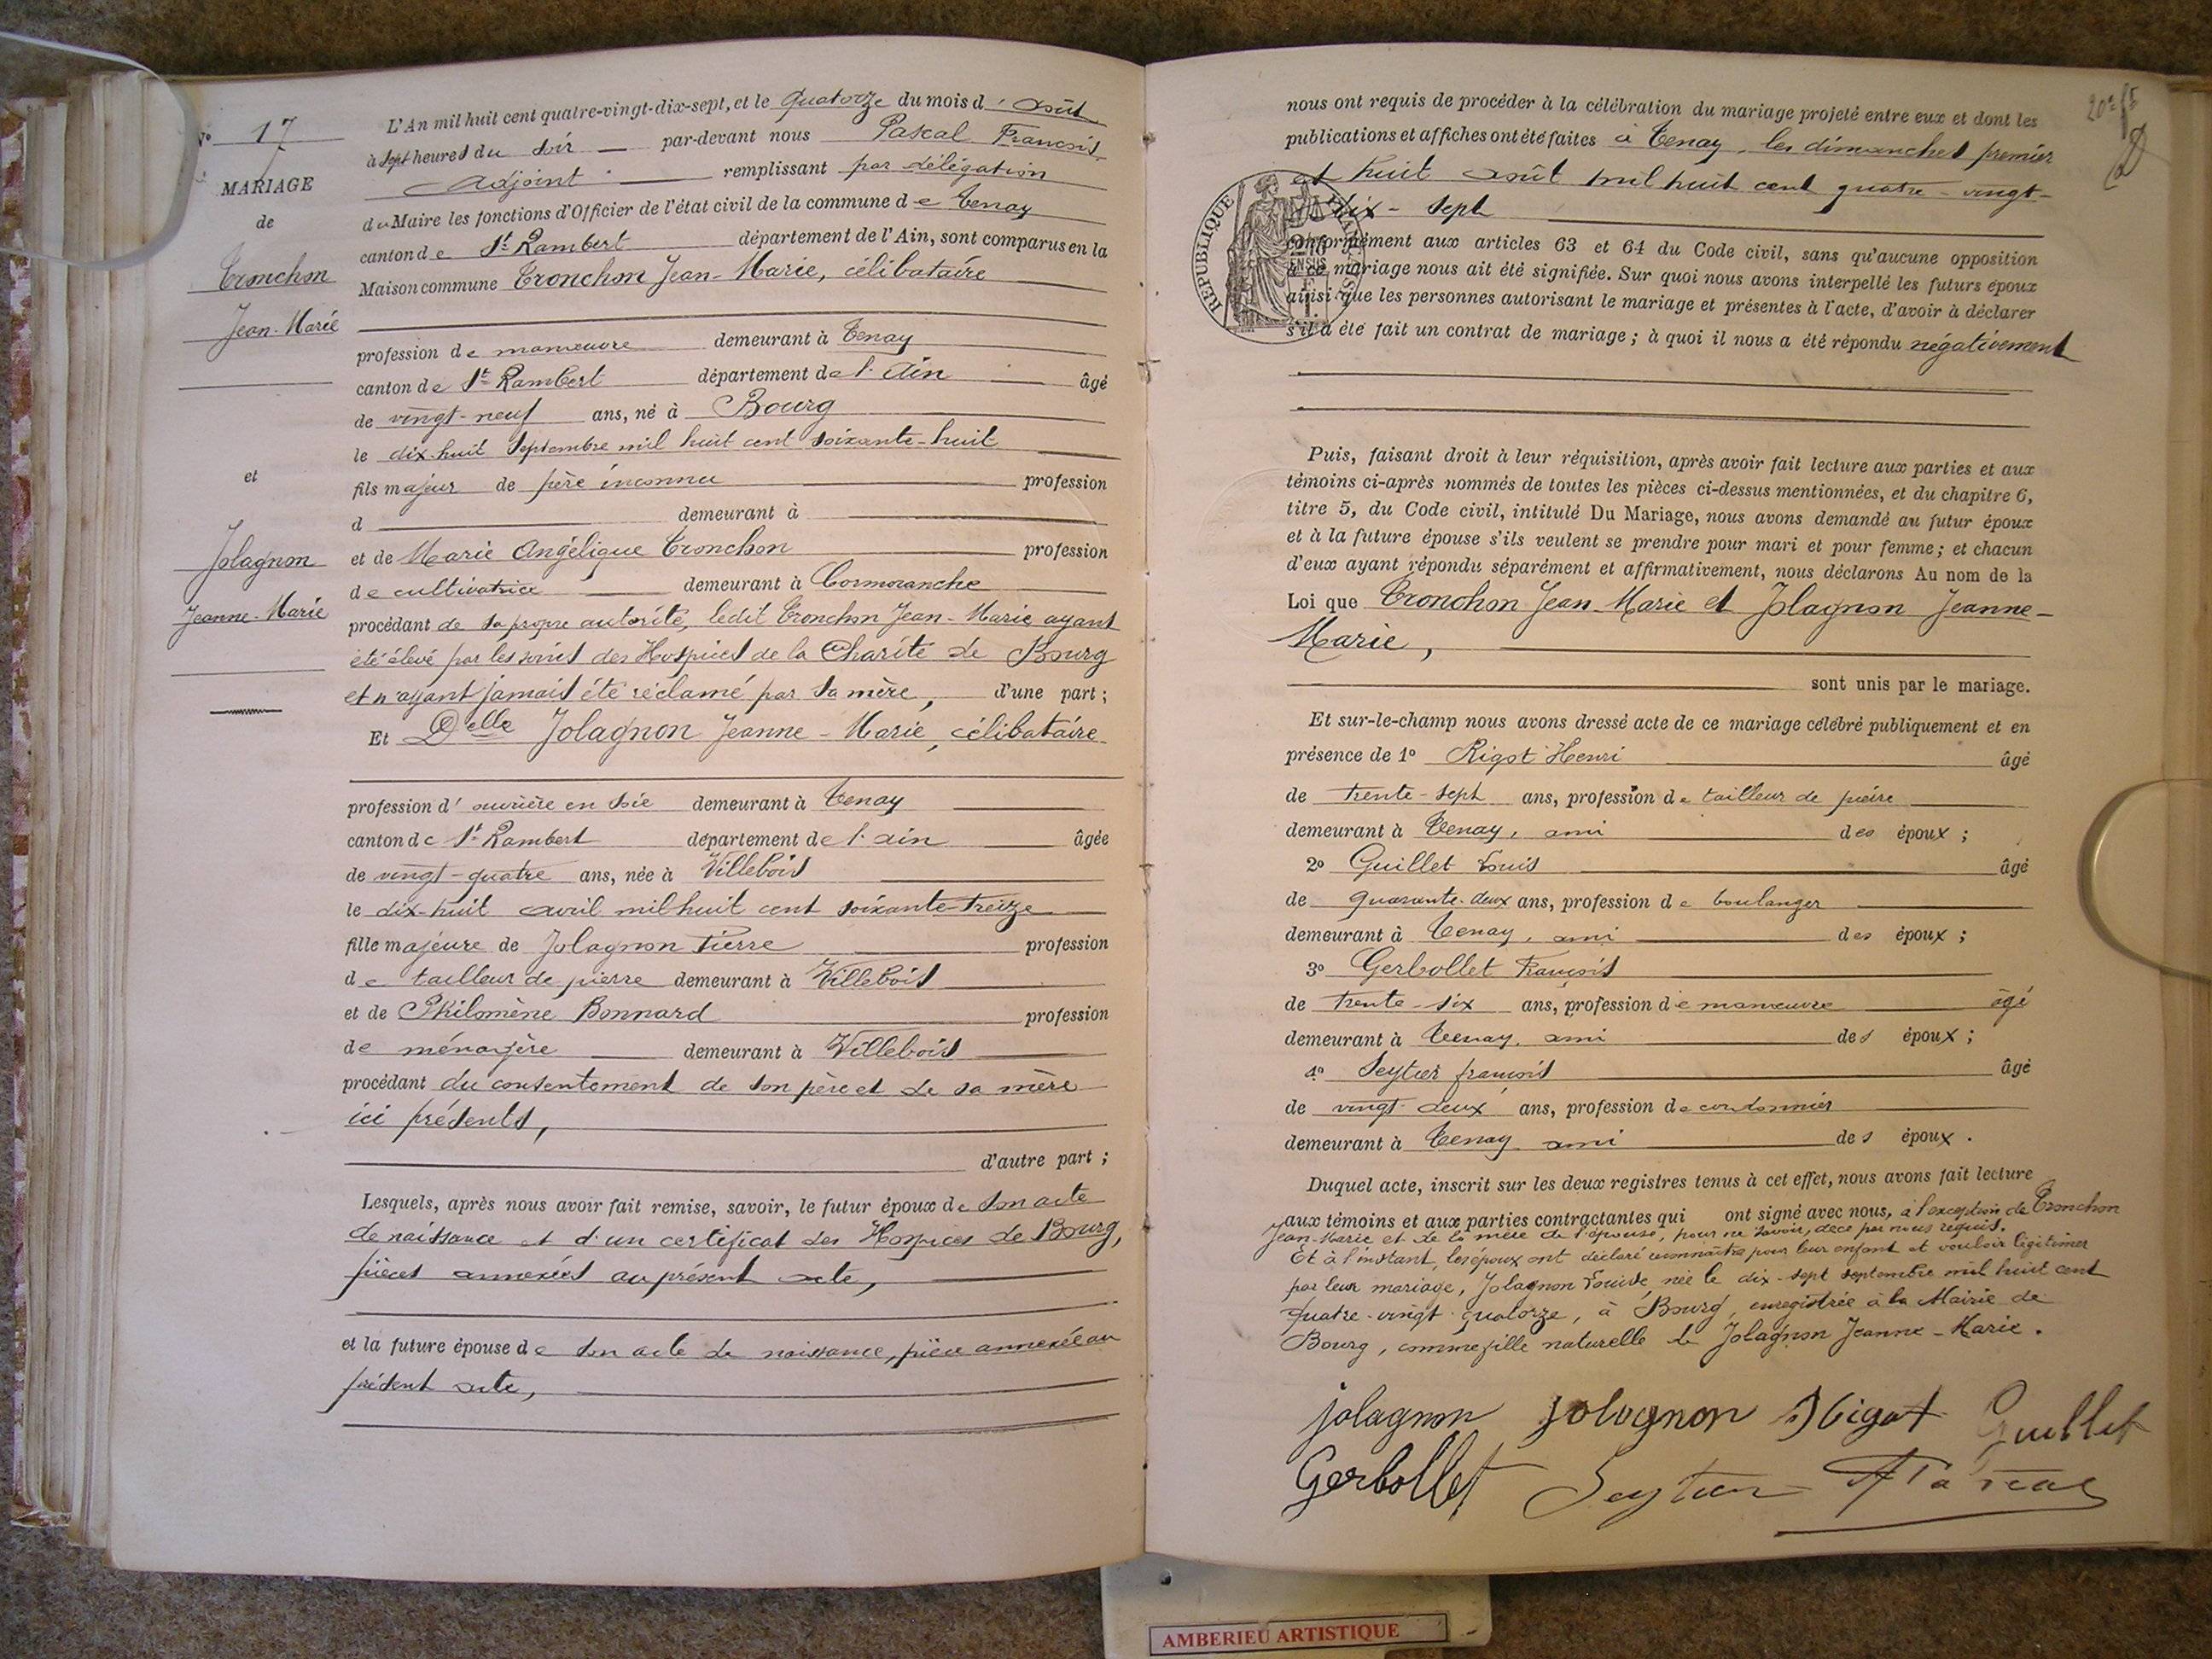 N° 17
MARIAGE
de
Tronchon
Jean-Marie
et
Jolagnon
Jeanne-Marie
L'An mil huit cent quatre-vingt-dix-sept, et le Quatorze du mois d'août
à sept heures du soir par-devant nous Pascal François,
Adjoint remplissant par délégation
du Maire les fonctions d'Officier de l'état civil de la commune de Tenay
canton de St Rambert département de l'Ain, sont comparus en la
Maison commune Tronchon Jean-Marie, célibataire
profession de manœuvre demeurant à Tenay
canton de St Rambert département de l'Ain âgé
de vingt-neuf ans, né à Bourg
le dix-huit Septembre mil huit cent soixante-huit
fils majeur de père inconnu profession
d demeurant à
et de Marie Angélique Tronchon profession
de cultivatrice demeurant à Cormoranche
procédant de sa propre autorité, ledit Tronchon Jean-Marie ayant
été élevé par les soins des Hospices de la Charité de Bourg
et n'ayant jamais été réclamé par sa mère, d'une part ;
Et Delle Jolagnon Jeanne-Marie, célibataire
profession d'ouvrière en soie demeurant à Tenay
canton de St Rambert département de l'ain âgée
de vingt-quatre ans, née à Villebois
le dix-huit avril mil huit cent soixante-treize
fille majeure de Jolagnon Pierre profession
de tailleur de pierre demeurant à Villebois
et de Philomène Bonnard profession
de ménagère demeurant à Villebois
procédant du consentement de son père et de sa mère
ici présents,
d'autre part ;
Lesquels, après nous avoir fait remise, savoir, le futur époux de son acte
de naissance et d'un certificat des Hospices de Bourg,
pièces annexées au présent acte,
et la future épouse de son acte de naissance, pièce annexée au
présent acte,
nous ont requis de procéder à la célébration du mariage projeté entre eux et dont les
publications et affiches ont été faites à Tenay, les dimanches premier
et huit août mil huit cent quatre-vingt-
dix-sept
RÉPUBLIQUE FRANÇAISE
conformément aux articles 63 et 64 du Code civil, sans qu'aucune opposition
à ce mariage nous ait été signifiée. Sur quoi nous avons interpellé les futurs époux
ainsi que les personnes autorisant le mariage et présentes à l'acte, d'avoir à déclarer
s'il a été fait un contrat de mariage ; à quoi il nous a été répondu négativement
Puis, faisant droit à leur réquisition, après avoir fait lecture aux parties et aux
témoins ci-après nommés de toutes les pièces ci-dessus mentionnées, et du chapitre 6,
titre 5, du Code civil, intitulé Du Mariage, nous avons demandé au futur époux
et à la future épouse s'ils veulent se prendre pour mari et pour femme ; et chacun
d'eux ayant répondu séparément et affirmativement, nous déclarons Au nom de la
Loi que Tronchon Jean Marie et Jolagnon Jeanne-
Marie,
sont unis par le mariage.
Et sur-le-champ nous avons dressé acte de ce mariage célébré publiquement et en
présence de 1° Rigot Henri âgé
de trente-sept ans, profession de tailleur de pierre
demeurant à Tenay, ami des époux ;
2° Guillet Louis âgé
de quarante-deux ans, profession de boulanger
demeurant à Tenay, ami des époux ;
3° Gerbollet François
de trente-six ans, profession de manœuvre âgé
demeurant à Tenay, ami des époux ;
4° Seytier françois âgé
de vingt-deux ans, profession de cordonnier
demeurant à Tenay ami des époux.
Duquel acte, inscrit sur les deux registres tenus à cet effet, nous avons fait lecture
aux témoins et aux parties contractantes qui ont signé avec nous, à l'exception de Tronchon
Jean-Marie et de la mère de l'épouse, pour ne savoir, de ce par nous requis.
Et à l'instant, les époux ont déclaré reconnaître pour leur enfant et vouloir légitimer
par leur mariage, Jolagnon Louise, née le dix-sept septembre mil huit cent
quatre-vingt-quatorze, à Bourg, enregistrée à la Mairie de
Bourg, comme fille naturelle de Jolagnon Jeanne-Marie.
jolagnon jolognon Rigot Guillet
Gerbollet Seytier Pascal
AMBERIEU ARTISTIQUE